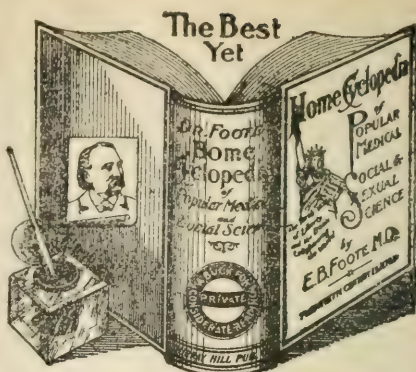 The Best
Yet
Dr. Foote's
Home
Cyclopedia
of
Popular Medical
and
Social Science
PRIVATE
MURRAY HILL PUB
Home Cyclopedia
of
POPULAR
MEDICAL
SOCIAL &
SEXUAL
SCIENCE
by
E.B. FOOTE M.D.
TWENTIETH CENTURY EDITION